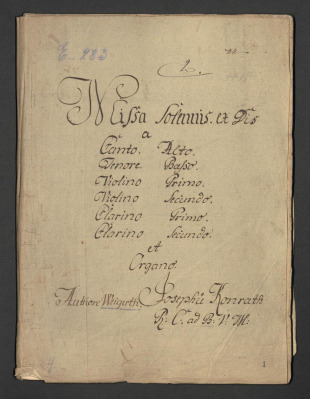 E. 983
2.
Missa Solemnis. ex D♮s
a
Canto. Alto.
Tenore Basso.
Violino Primo.
Violino Secundo.
Clarino Primo.
Clarino Secundo.
et
Organo.
Authore Weigerth. Josephi Konrath
R: C. ad B: V: M:
1